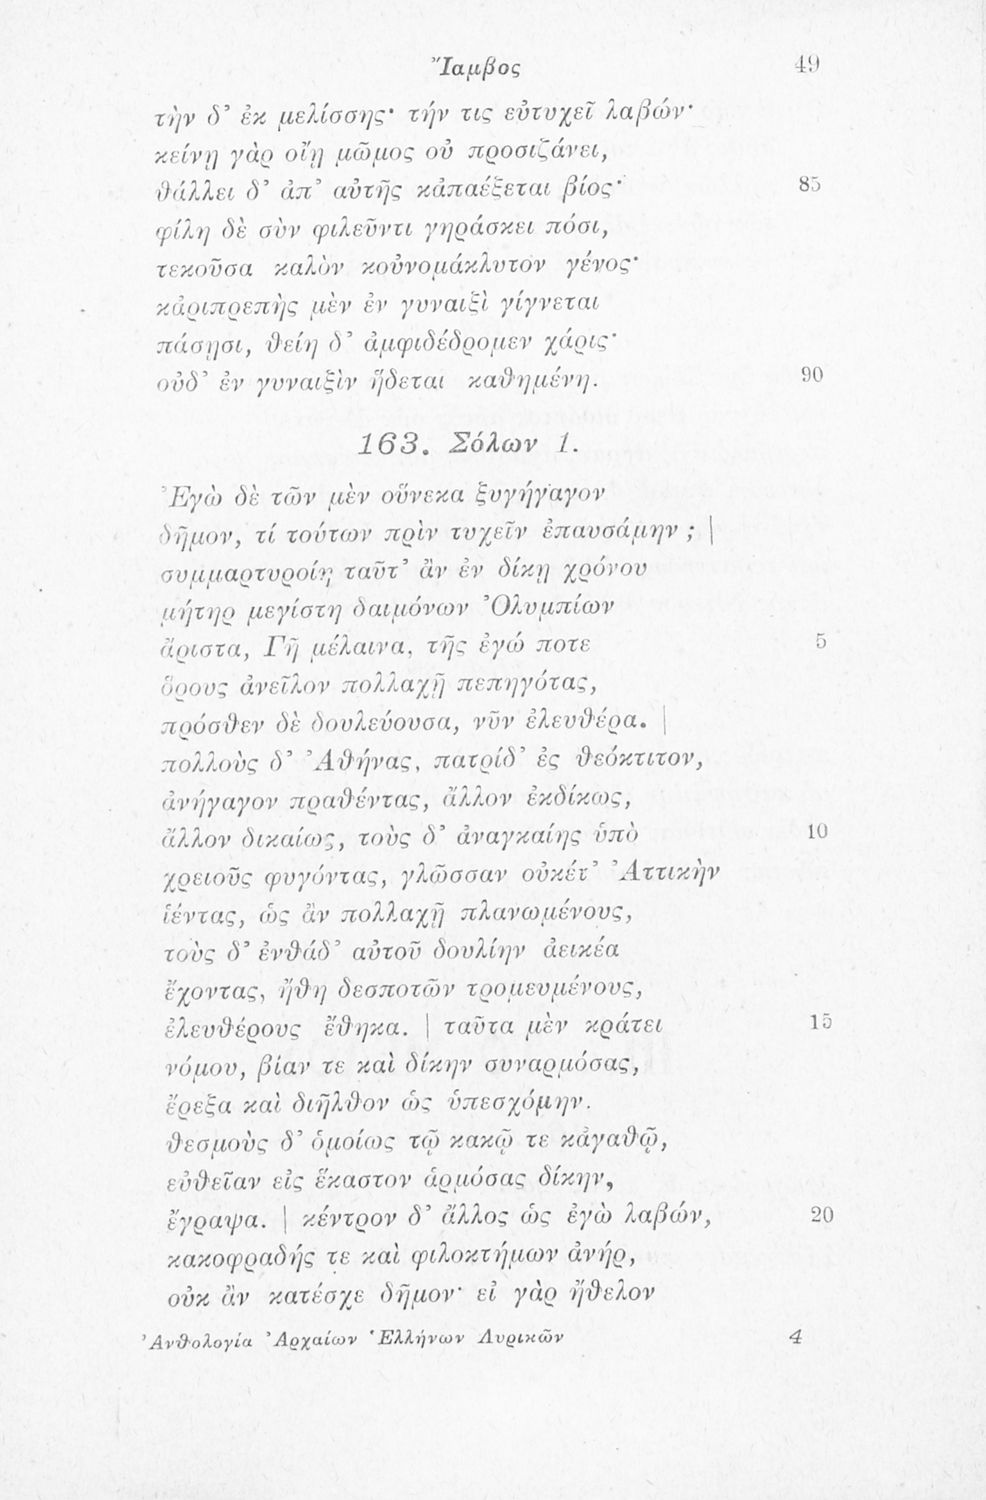 Ἴαμβος 49
τὴν δ’ ἐκ μελίσσης· τήν τις εὐτυχεῖ λαβών·
κείνῃ γὰρ οἴῃ μῶμος οὐ προσιζάνει,
θάλλει δ’ ἀπ’ αὐτῆς κἀπαέξεται βίος· 85
φίλη δὲ σὺν φιλεῦντι γηράσκει πόσι,
τεκοῦσα καλὸν κοὐνομάκλυτον γένος·
κἀριπρεπὴς μὲν ἐν γυναιξὶ γίγνεται
πάσῃσι, θείη δ’ ἀμφιδέδρομεν χάρις·
οὐδ’ ἐν γυναιξὶν ἥδεται καθημένη. 90
163. Σόλων 1.
Ἐγὼ δὲ τῶν μὲν οὕνεκα ξυγήγαγον
δῆμον, τί τούτων πρὶν τυχεῖν ἐπαυσάμην ; |
συμμαρτυροίη ταῦτ’ ἂν ἐν δίκῃ χρόνου
μήτηρ μεγίστη δαιμόνων Ὀλυμπίων
ἄριστα, Γῆ μέλαινα, τῆς ἐγώ ποτε 5
ὅρους ἀνεῖλον πολλαχῇ πεπηγότας,
πρόσθεν δὲ δουλεύουσα, νῦν ἐλευθέρα. |
πολλοὺς δ’ Ἀθήνας, πατρίδ’ ἐς θεόκτιτον,
ἀνήγαγον πραθέντας, ἄλλον ἐκδίκως,
ἄλλον δικαίως, τοὺς δ’ ἀναγκαίης ὑπὸ 10
χρειοῦς φυγόντας, γλῶσσαν οὐκέτ’ Ἀττικὴν
ἱέντας, ὡς ἂν πολλαχῇ πλανωμένους,
τοὺς δ’ ἐνθάδ’ αὐτοῦ δουλίην ἀεικέα
ἔχοντας, ἤθη δεσποτῶν τρομευμένους,
ἐλευθέρους ἔθηκα. | ταῦτα μὲν κράτει 15
νόμου, βίαν τε καὶ δίκην συναρμόσας,
ἔρεξα καὶ διῆλθον ὡς ὑπεσχόμην.
θεσμοὺς δ’ ὁμοίως τῷ κακῷ τε κἀγαθῷ,
εὐθεῖαν εἰς ἕκαστον ἁρμόσας δίκην,
ἔγραψα. | κέντρον δ’ ἄλλος ὡς ἐγὼ λαβών, 20
κακοφραδής τε καὶ φιλοκτήμων ἀνήρ,
οὐκ ἂν κατέσχε δῆμον· εἰ γὰρ ἤθελον
Ἀνθολογία Ἀρχαίων Ἑλλήνων Λυρικῶν 4